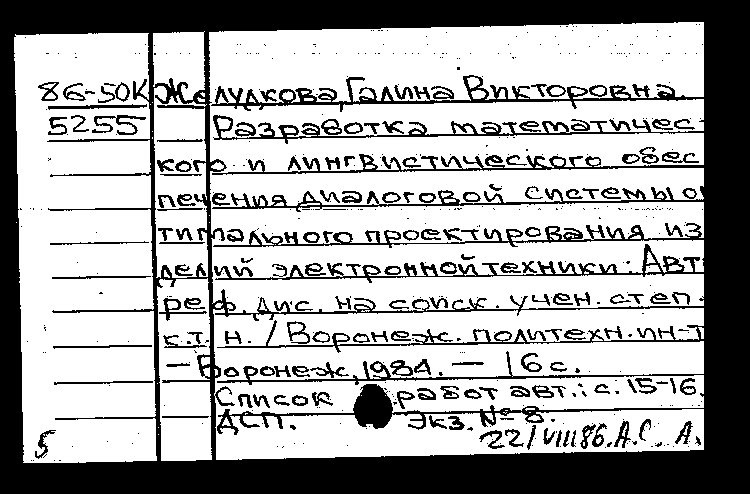 86-50К Желудкова, Галина Викторовна.
5255 Разработка математичес-
кого и лингвистического обес
печения диалоговой системы оп
тимального проектирования из
делий электронной техники: Авт
реф. дис. на соиск. учен. степ.
к.т.н. / Воронеж. политехн. ин-т
– Воронеж, 1984. – 16 с.
Список работ авт.: с. 15-16.
ДСП. Экз. № 8.
5 22/VIII86. А.С. А.